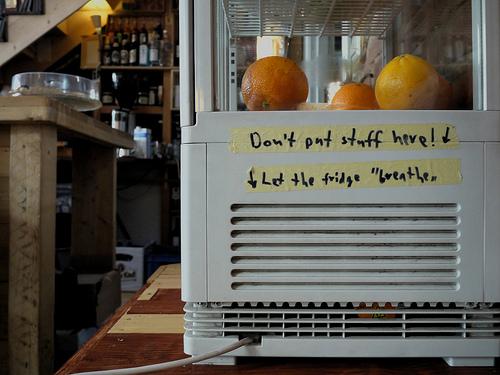 Don't put stuff here! ↓
↓ Let the fridge "breathe"